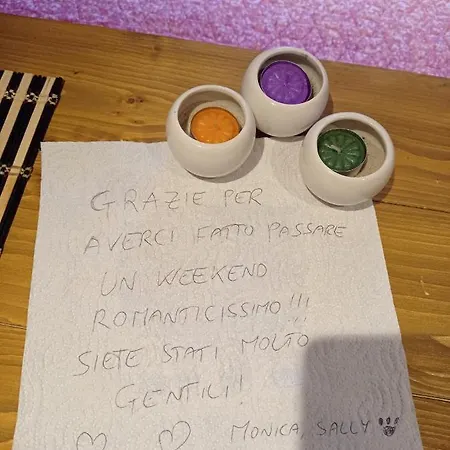 GRAZIE PER
AVERCI FATTO PASSARE
UN WEEKEND
ROMANTICISSIMO!!!
SIETE STATI MOLTO
GENTILI!
MONICA, SALLY